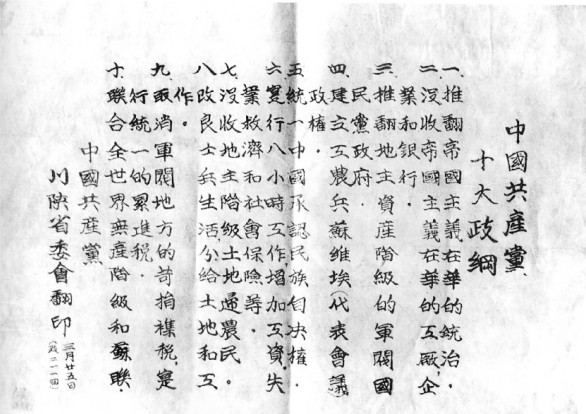 中國共產黨
十大政綱
一、推翻帝國主義在華的統治，
二、沒收帝國主義在華的工厰，企
業和銀行．
三．推翻地主資產階級的軍閥國
民黨政府．
四．建立工農兵蘇維埃代表會議
政權．
五統一中國承認民族自决權．
六實行八小時工作，增加工資，失
業救濟和社會保險等．
七．沒收地主階級土地農民。
八改良士兵生活，分給土地和工
作。
九．取消軍閥地方的苛捐襍稅，寔
行統一的累進稅．
十．聯合全世界無產階級和蘇聯．
中國共產黨
川陝省委會翻印
三月廿五日